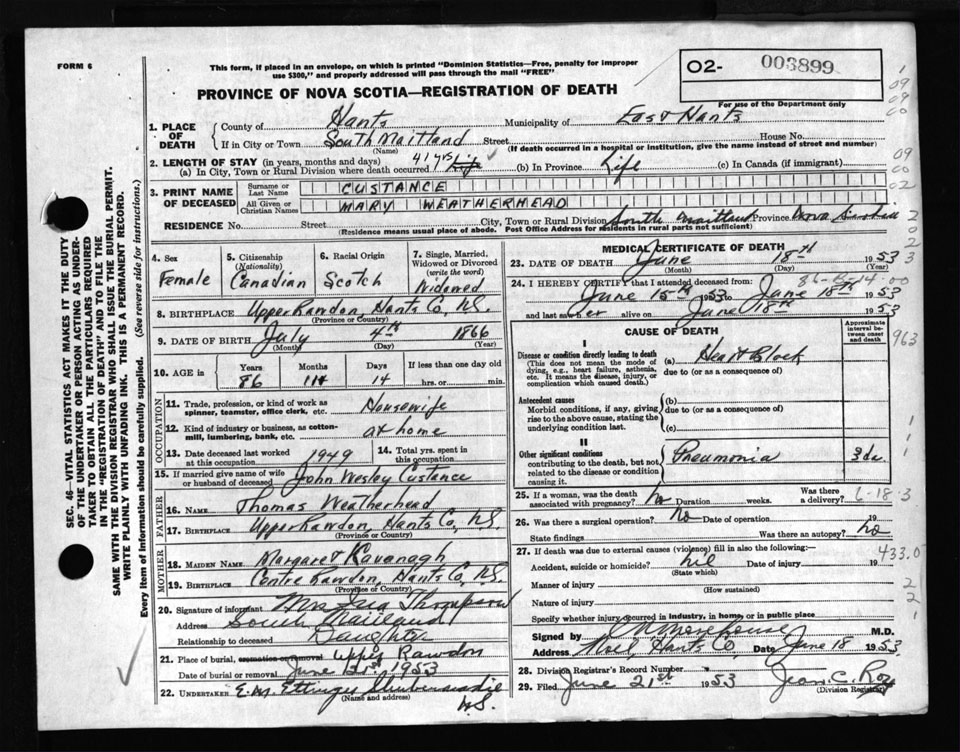 FORM 6
This form, if placed in an envelope, on which is printed "Dominion Statistics—Free, penalty for improper
use $300," and properly addressed will pass through the mail "FREE"
02- 003899
For use of the Department only
PROVINCE OF NOVA SCOTIA—REGISTRATION OF DEATH
1. PLACE OF DEATH
County of Hants Municipality of East Hants
If in City or Town South Maitland Street House No.
(Name) (If death occurred in a hospital or institution, give the name instead of street and number)
2. LENGTH OF STAY (in years, months and days)
(a) In City, Town or Rural Division where death occurred 41 yrs Life (b) In Province Life (c) In Canada (if immigrant)
3. PRINT NAME OF DECEASED
Surname or Last Name CUSTANCE
All Given or Christian Names MARY WEATHERHEAD
RESIDENCE No. Street City, Town or Rural Division South Maitland Province Nova Scotia
(Residence means usual place of abode. Post Office Address for residents in rural parts not sufficient)
4. Sex Female
5. Citizenship (Nationality) Canadian
6. Racial Origin Scotch
7. Single, Married, Widowed or Divorced (write the word) Widowed
8. BIRTHPLACE Upper Rawdon, Hants Co, N.S.
(Province or Country)
9. DATE OF BIRTH July 4th 1866
(Month) (Day) (Year)
10. AGE in Years 86 Months 11 Days 14 If less than one day old
hrs. or min.
OCCUPATION
11. Trade, profession, or kind of work as spinner, teamster, office clerk, etc. Housewife
12. Kind of industry or business, as cotton-mill, lumbering, bank, etc. at home
13. Date deceased last worked at this occupation 1949 14. Total yrs. spent in this occupation
15. If married give name of wife or husband of deceased John Wesley Custance
FATHER
16. Name Thomas Weatherhead
17. Birthplace Upper Rawdon, Hants Co, N.S.
MOTHER
18. Maiden Name Margaret Kavanagh
19. Birthplace Centre Rawdon, Hants Co, N.S.
(Province or Country)
20. Signature of informant Mrs Thompson
Address South Maitland
Relationship to deceased Daughter
21. Place of burial, cremation or removal Upper Rawdon
Date of burial or removal June 21st 1953
22. Undertaker E. M. Ettinger Shubenacadie
(Name and address) N.S.
MEDICAL CERTIFICATE OF DEATH
23. DATE OF DEATH June 18th 1953
(Month) (Day) (Year)
86-11-14-00
24. I HEREBY CERTIFY that I attended deceased from:
June 15th 1953 to June 18th 1953
and last saw her alive on June 18th 1953
CAUSE OF DEATH
Approximate interval between onset and death
I
Disease or condition directly leading to death (a) Heart Block
(This does not mean the mode of dying, e.g., heart failure, asthenia, etc. It means the disease, injury, or complication which caused death.)
due to (or as a consequence of)
Antecedent causes
Morbid conditions, if any, giving rise to the above cause, stating the underlying condition last.
(b)
due to (or as a consequence of)
(c)
II
Other significant conditions contributing to the death, but not related to the disease or condition causing it.
Pneumonia 3 da
25. If a woman, was the death associated with pregnancy? no Duration weeks. Was there a delivery? 6-18-3
26. Was there a surgical operation? No Date of operation 19
State findings Was there an autopsy? no
27. If death was due to external causes (violence) fill in also the following:—
Accident, suicide or homicide? nil Date of injury 19
(State which)
433.0
Manner of injury
(How sustained)
Nature of injury
Specify whether injury occurred in industry, in home, or in public place
Signed by M.D.
Address Noel Hants Co, Date June 18 1953
28. Division Registrar's Record Number
29. Filed June 21st 1953 Jean C. Roy
(Division Registrar)
SEC. 46—VITAL STATISTICS ACT MAKES IT THE DUTY
OF THE UNDERTAKER OR PERSON ACTING AS UNDER-
TAKER TO OBTAIN ALL THE PARTICULARS REQUIRED
IN THE "REGISTRATION OF DEATH" AND TO FILE THE
SAME WITH THE DIVISION REGISTRAR WHO SHALL ISSUE THE BURIAL PERMIT.
WRITE PLAINLY WITH UNFADING INK. THIS IS A PERMANENT RECORD.
Every item of information should be carefully supplied. (See reverse side for instructions.)